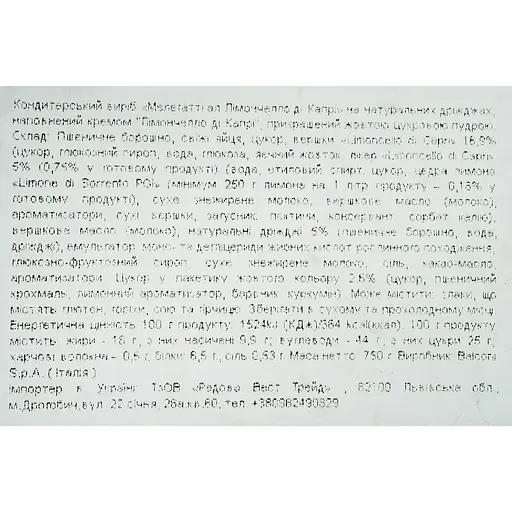 Кондитерський виріб «Мелегатті ал Лімончелло ді Капрі» на натуральних дріжджах,
наповнений кремом "Лімончелло ді Капрі", прикрашений жовтою цукровою пудрою.
Склад: Пшеничне борошно, свіжі яйця, цукор, вершки «Limoncello di Capri» 18,9%
(цукор, глюкозний сироп, вода, глюкоза, яєчний жовток, лікер «Limoncello di Capri»
5% (0,75% у готовому продукті) (вода, етиловий спирт, цукор, цедра лимона
«Limone di Sorrento PGI» (мінімум 250 г лимона на 1 літр продукту – 0,18% у
готовому продукті), сухе знежирене молоко, вершкове масло (молоко),
ароматизатори, сухі вершки, загусник: пектини, консервант: сорбат калію),
вершкове масло (молоко), натуральні дріжджі 5% (пшеничне борошно, вода,
дріжджі), емульгатор: моно- та дигліцериди жирних кислот рослинного походження,
глюкозно-фруктозний сироп, сухе знежирене молоко, сіль, какао-масло,
ароматизатори. Цукор у пакетику жовтого кольору 2,6% (цукор, пшеничний
крохмаль, лимонний ароматизатор, барвник: куркумін). Може містити: злаки, що
містять глютен, горіхи, сою та гірчицю. Зберігати в сухому та прохолодному місці.
Енергетична цінність 100 г продукту: 1524kJ (КДж)/364 kcal(ккал). 100 г продукту
містить: жири - 18 г, з них насичені 9,9 г; вуглеводи - 44 г, з них цукри 25 г;
харчові волокна – 0,6 г; білки 6,5 г; сіль 0,53 г. Маса нетто: 750 г. Виробник: Balconi
S.p.A. ( Італія )
Імпортер в Україні: ТзОВ «Радова Вест Трейд» , 82100 Львівська обл.,
м.Дрогобич,вул. 22 січня, 28а,кв.60, тел. +380982490829